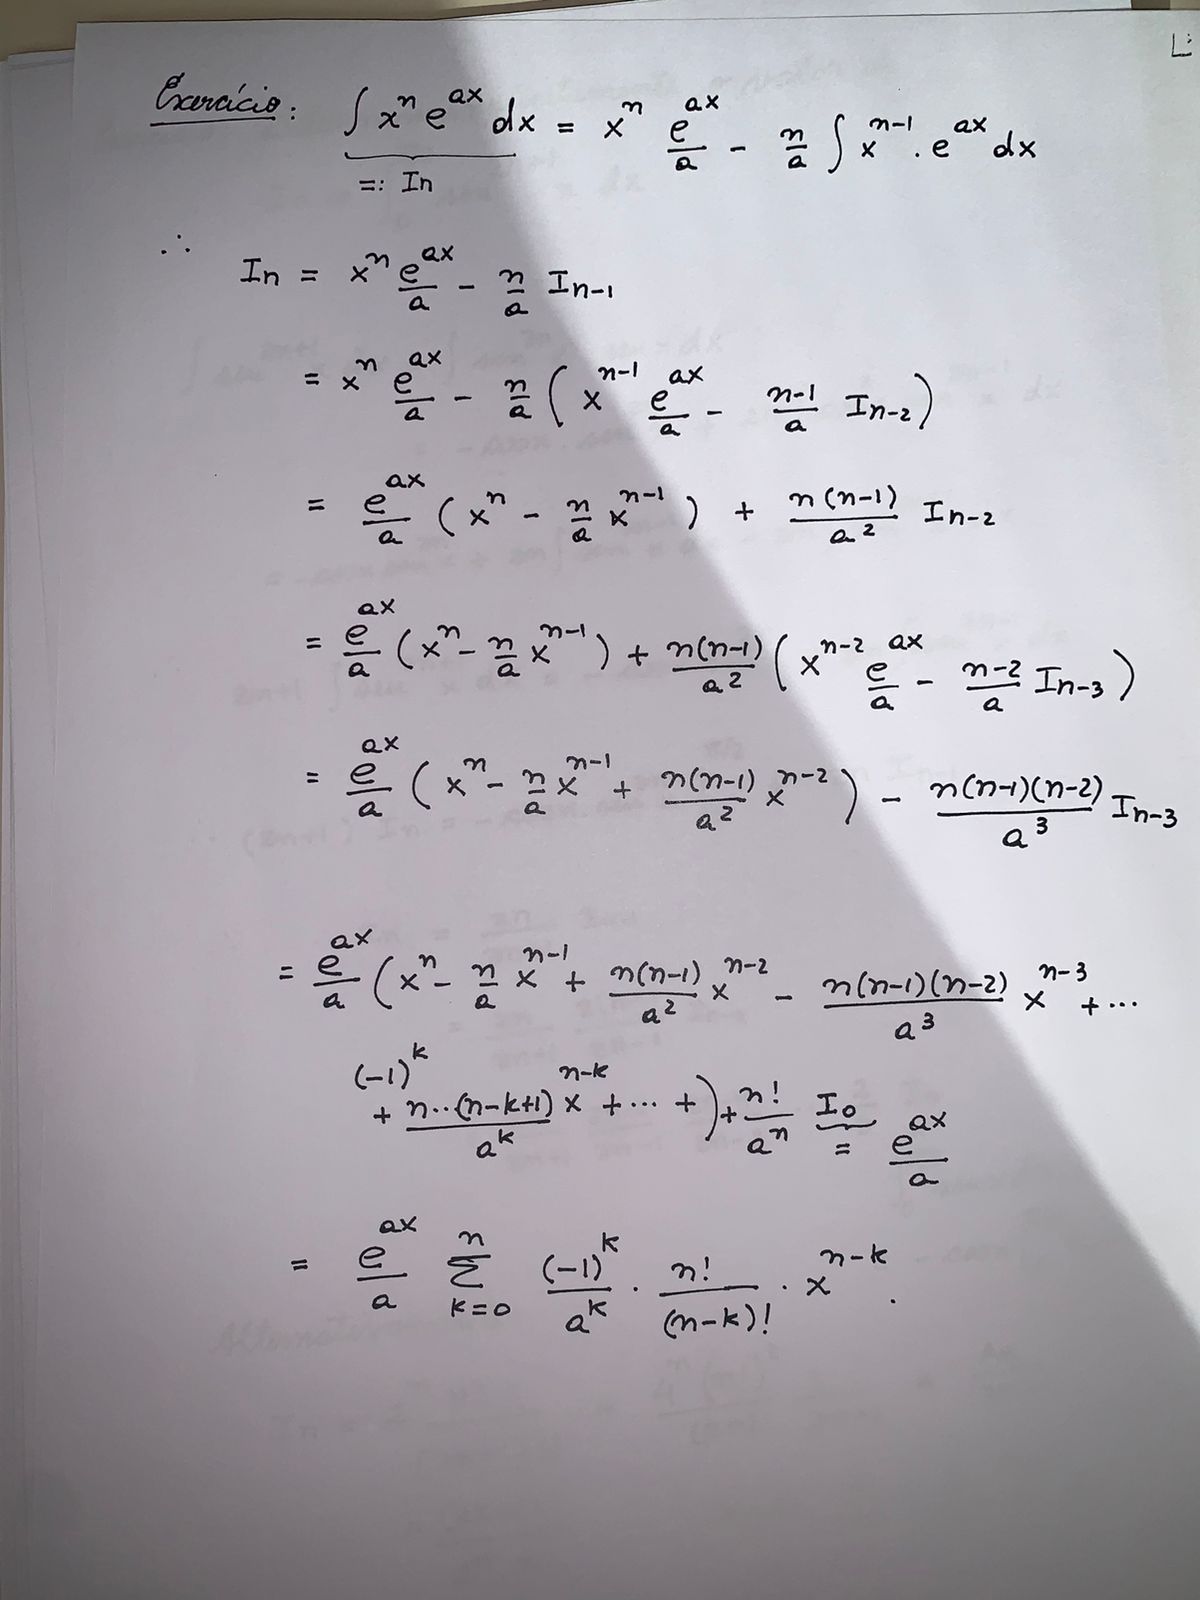 Exercício: ∫ xⁿ e^{ax} dx = xⁿ e^{ax}/a - n/a ∫ x^{n-1} . e^{ax} dx
=: In
∴
In = xⁿ e^{ax}/a - n/a I_{n-1}
= xⁿ e^{ax}/a - n/a ( x^{n-1} e^{ax}/a - (n-1)/a I_{n-2} )
= e^{ax}/a ( xⁿ - n/a x^{n-1} ) + n(n-1)/a² I_{n-2}
= e^{ax}/a ( xⁿ - n/a x^{n-1} ) + n(n-1)/a² ( x^{n-2} e^{ax}/a - (n-2)/a I_{n-3} )
= e^{ax}/a ( xⁿ - n/a x^{n-1} + n(n-1)/a² x^{n-2} ) - n(n-1)(n-2)/a³ I_{n-3}
= e^{ax}/a ( xⁿ - n/a x^{n-1} + n(n-1)/a² x^{n-2} - n(n-1)(n-2)/a³ x^{n-3} + ...
(-1)^k + n..(n-k+1)/a^k x^{n-k} + ... + ) + n!/aⁿ I₀ = e^{ax}/a
= e^{ax}/a Σ_{k=0}^{n} (-1)^k/a^k . n!/(n-k)! . x^{n-k} .